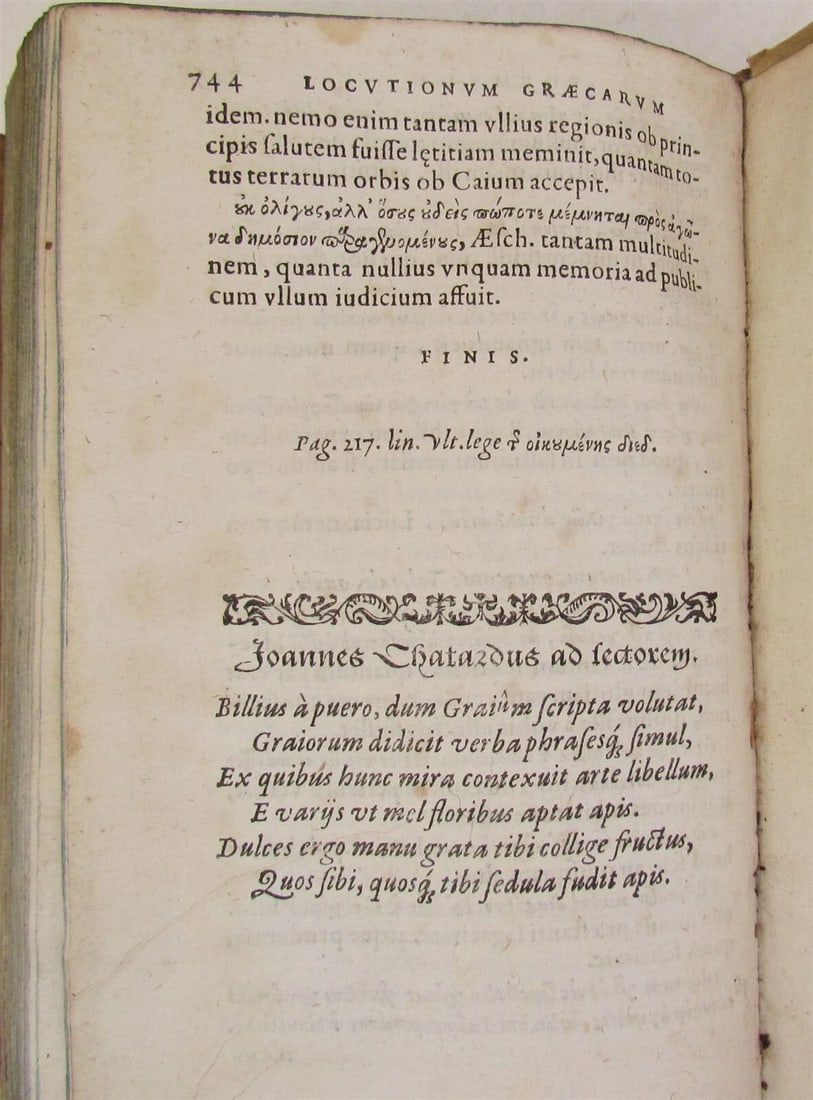 744 LOCVTIONVM GRÆCARVM
idem. nemo enim tantam vllius regionis ob prin-
cipis ſalutem fuiſſe lętitiam meminit, quantam to-
tus terrarum orbis ob Caium accepit.
ȣκ ὀλίγȣς, ἀλλ' ὅσȣς ȣδεὶς πώποτε μέμνηται πρὸς ἀγῶ-
να δημόσιον παραγενομένȣς, Æſch. tantam multitudi-
nem, quanta nullius vnquam memoria ad publi-
cum vllum iudicium affuit.
FINIS.
Pag. 217. lin. vlt. lege οἰκȣμένης διεδ.
Joannes Chatardus ad lectorem.
Billius à puero, dum Graiûm ſcripta volutat,
Graiorum didicit verba phraſesq́; ſimul,
Ex quibus hunc mira contexuit arte libellum,
E varijs vt mel floribus aptat apis.
Dulces ergo manu grata tibi collige fructus,
Quos ſibi, quosq́; tibi ſedula fudit apis.